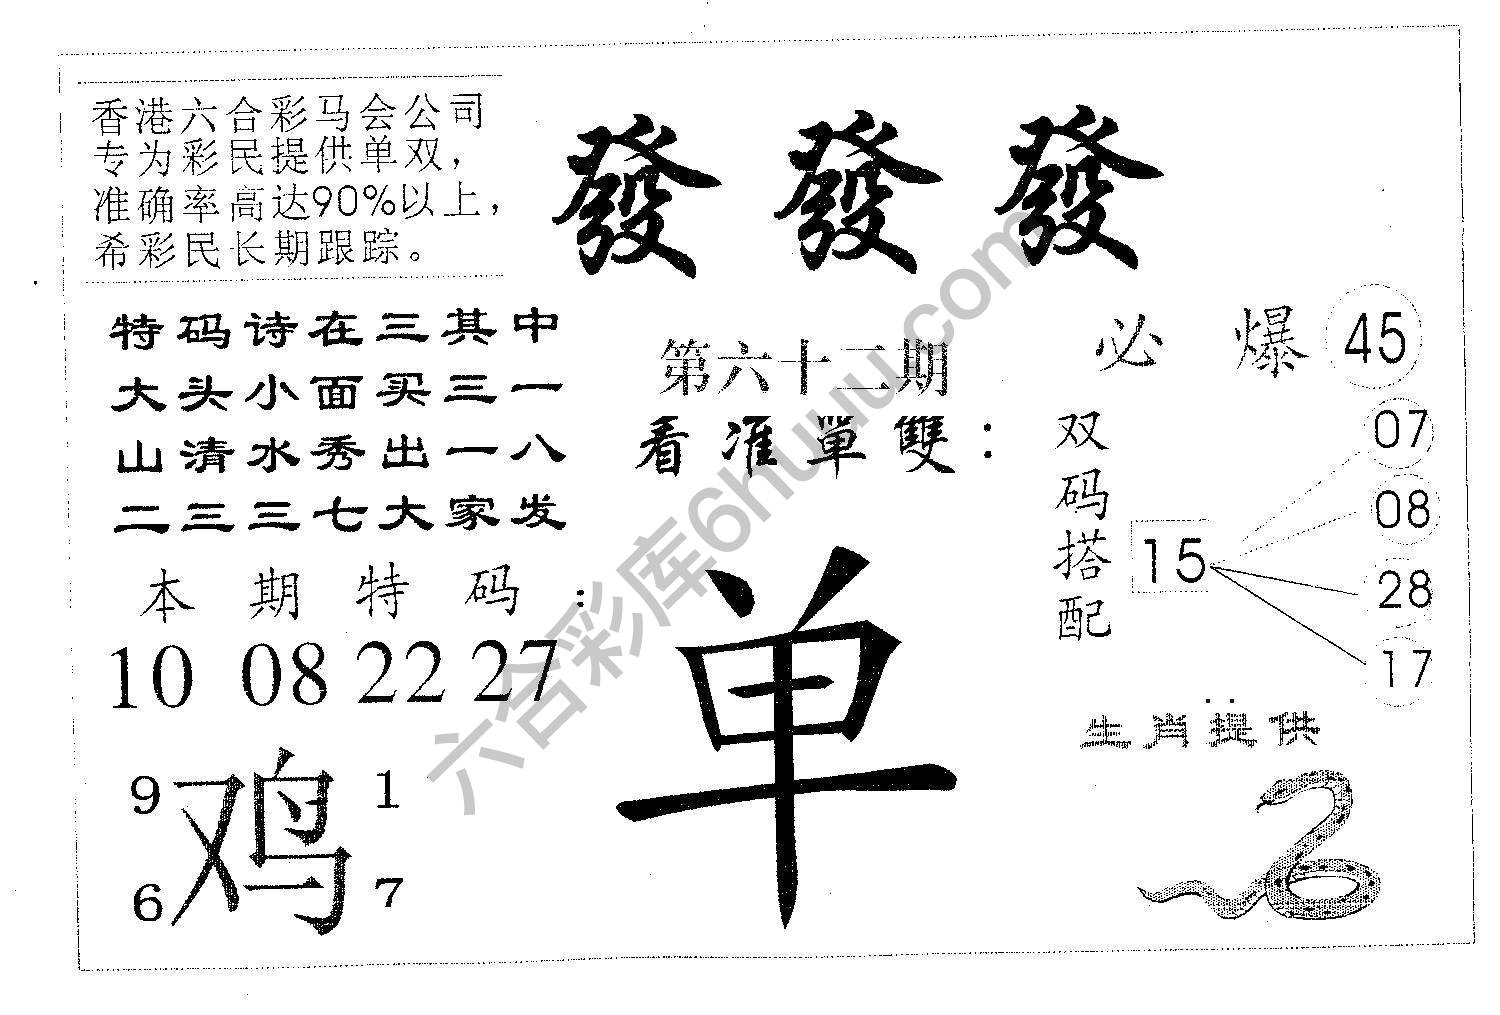 香港六合彩马会公司
专为彩民提供单双，
准确率高达90%以上，
希彩民长期跟踪。
發 發 發
特码诗在三其中
大头小面买三一
山清水秀出一八
二三三七大家发
第六十二期
看准單雙：
单
必 爆 45
双码搭配
15
07
08
28
17
本期特码：
10 08 22 27
9 鸡 1
6 7
生肖提供
六合彩库6huuu.com